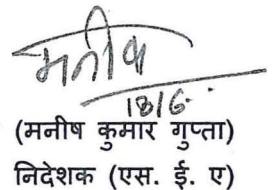 मनीष
18/6
(मनीष कुमार गुप्ता)
निदेशक (एस. ई. ए)